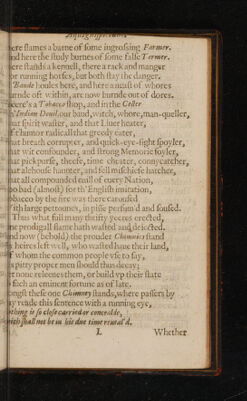 here flames a barne of some ingrossing Farmer.
and here the study burnes of some false Termer.
ere stands a kennell, there a rack and manger
or running horses, but both stay the danger.
Baudie houles here, and here a nest of whores
urnde off within, are now burnde out of dores.
eere's a Tobacco shop, and in the Celler
Indian Deuil, our baud, witch, whore, man-queller,
hat spirit waster, and that Liuer heater,
f humor radicall that greedy eater,
hat breath corrupter, and quick-eye-sight spoyler,
hat wit confounder, and strong Memorie foyler,
hat pickpurse, theefe, time cheater, connycatcher,
hat alehouse haunter, and fell mischiefe hatcher,
hat all compounded euill of euery Nation,
oo bad (almost) for th'English imitation,
obacco by the fire was there caroused
ith large pettounes, in pisse perfum'd and soused.
Thus what full many thrifty yeeres erected,
ne prodigall flame hath wasted and deiected.
nd now (behold) the prouder Chimnies stand
s heires left well, who wasted haue their land,
f whom the common people vse to say,
pitty proper men should thus decay;
t none releeues them, or build vp their state
such an eminent fortune as of late.
ongst these one Chimney stands, where passers by
ay reade this sentence with a running eye,
othing is so close carried or concealde,
hich shall not be in his due time reueal'd.
I. Whether